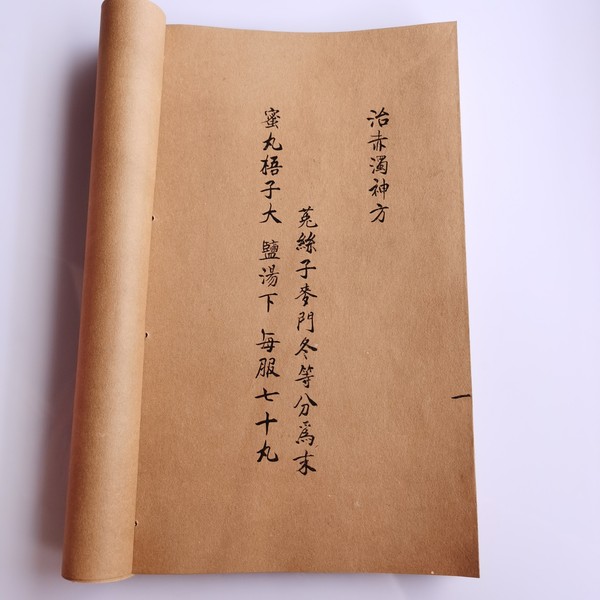 治赤濁神方
菟絲子麥門冬等分爲末
蜜丸梧子大 鹽湯下 每服七十丸
一